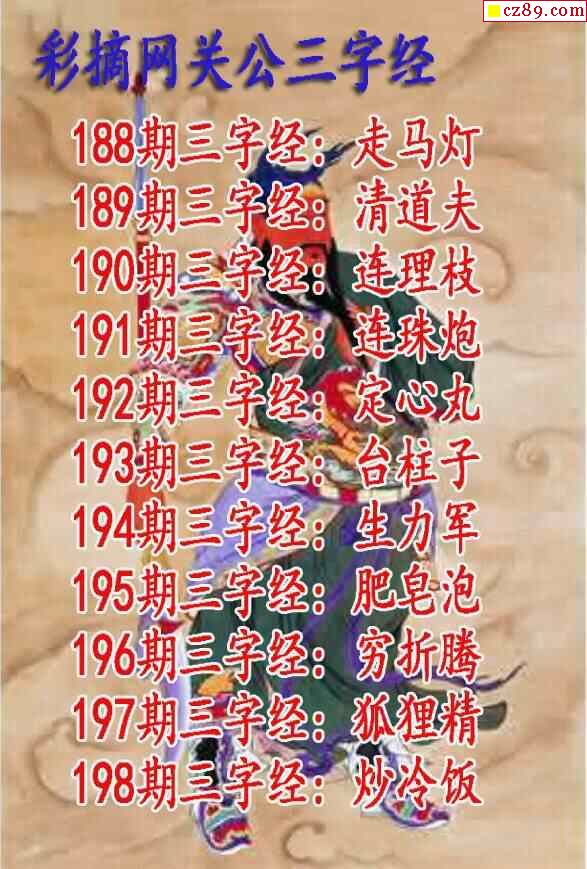 cz89.com
彩摘网关公三字经
188期三字经：走马灯
189期三字经：清道夫
190期三字经：连理枝
191期三字经：连珠炮
192期三字经：定心丸
193期三字经：台柱子
194期三字经：生力军
195期三字经：肥皂泡
196期三字经：穷折腾
197期三字经：狐狸精
198期三字经：炒冷饭